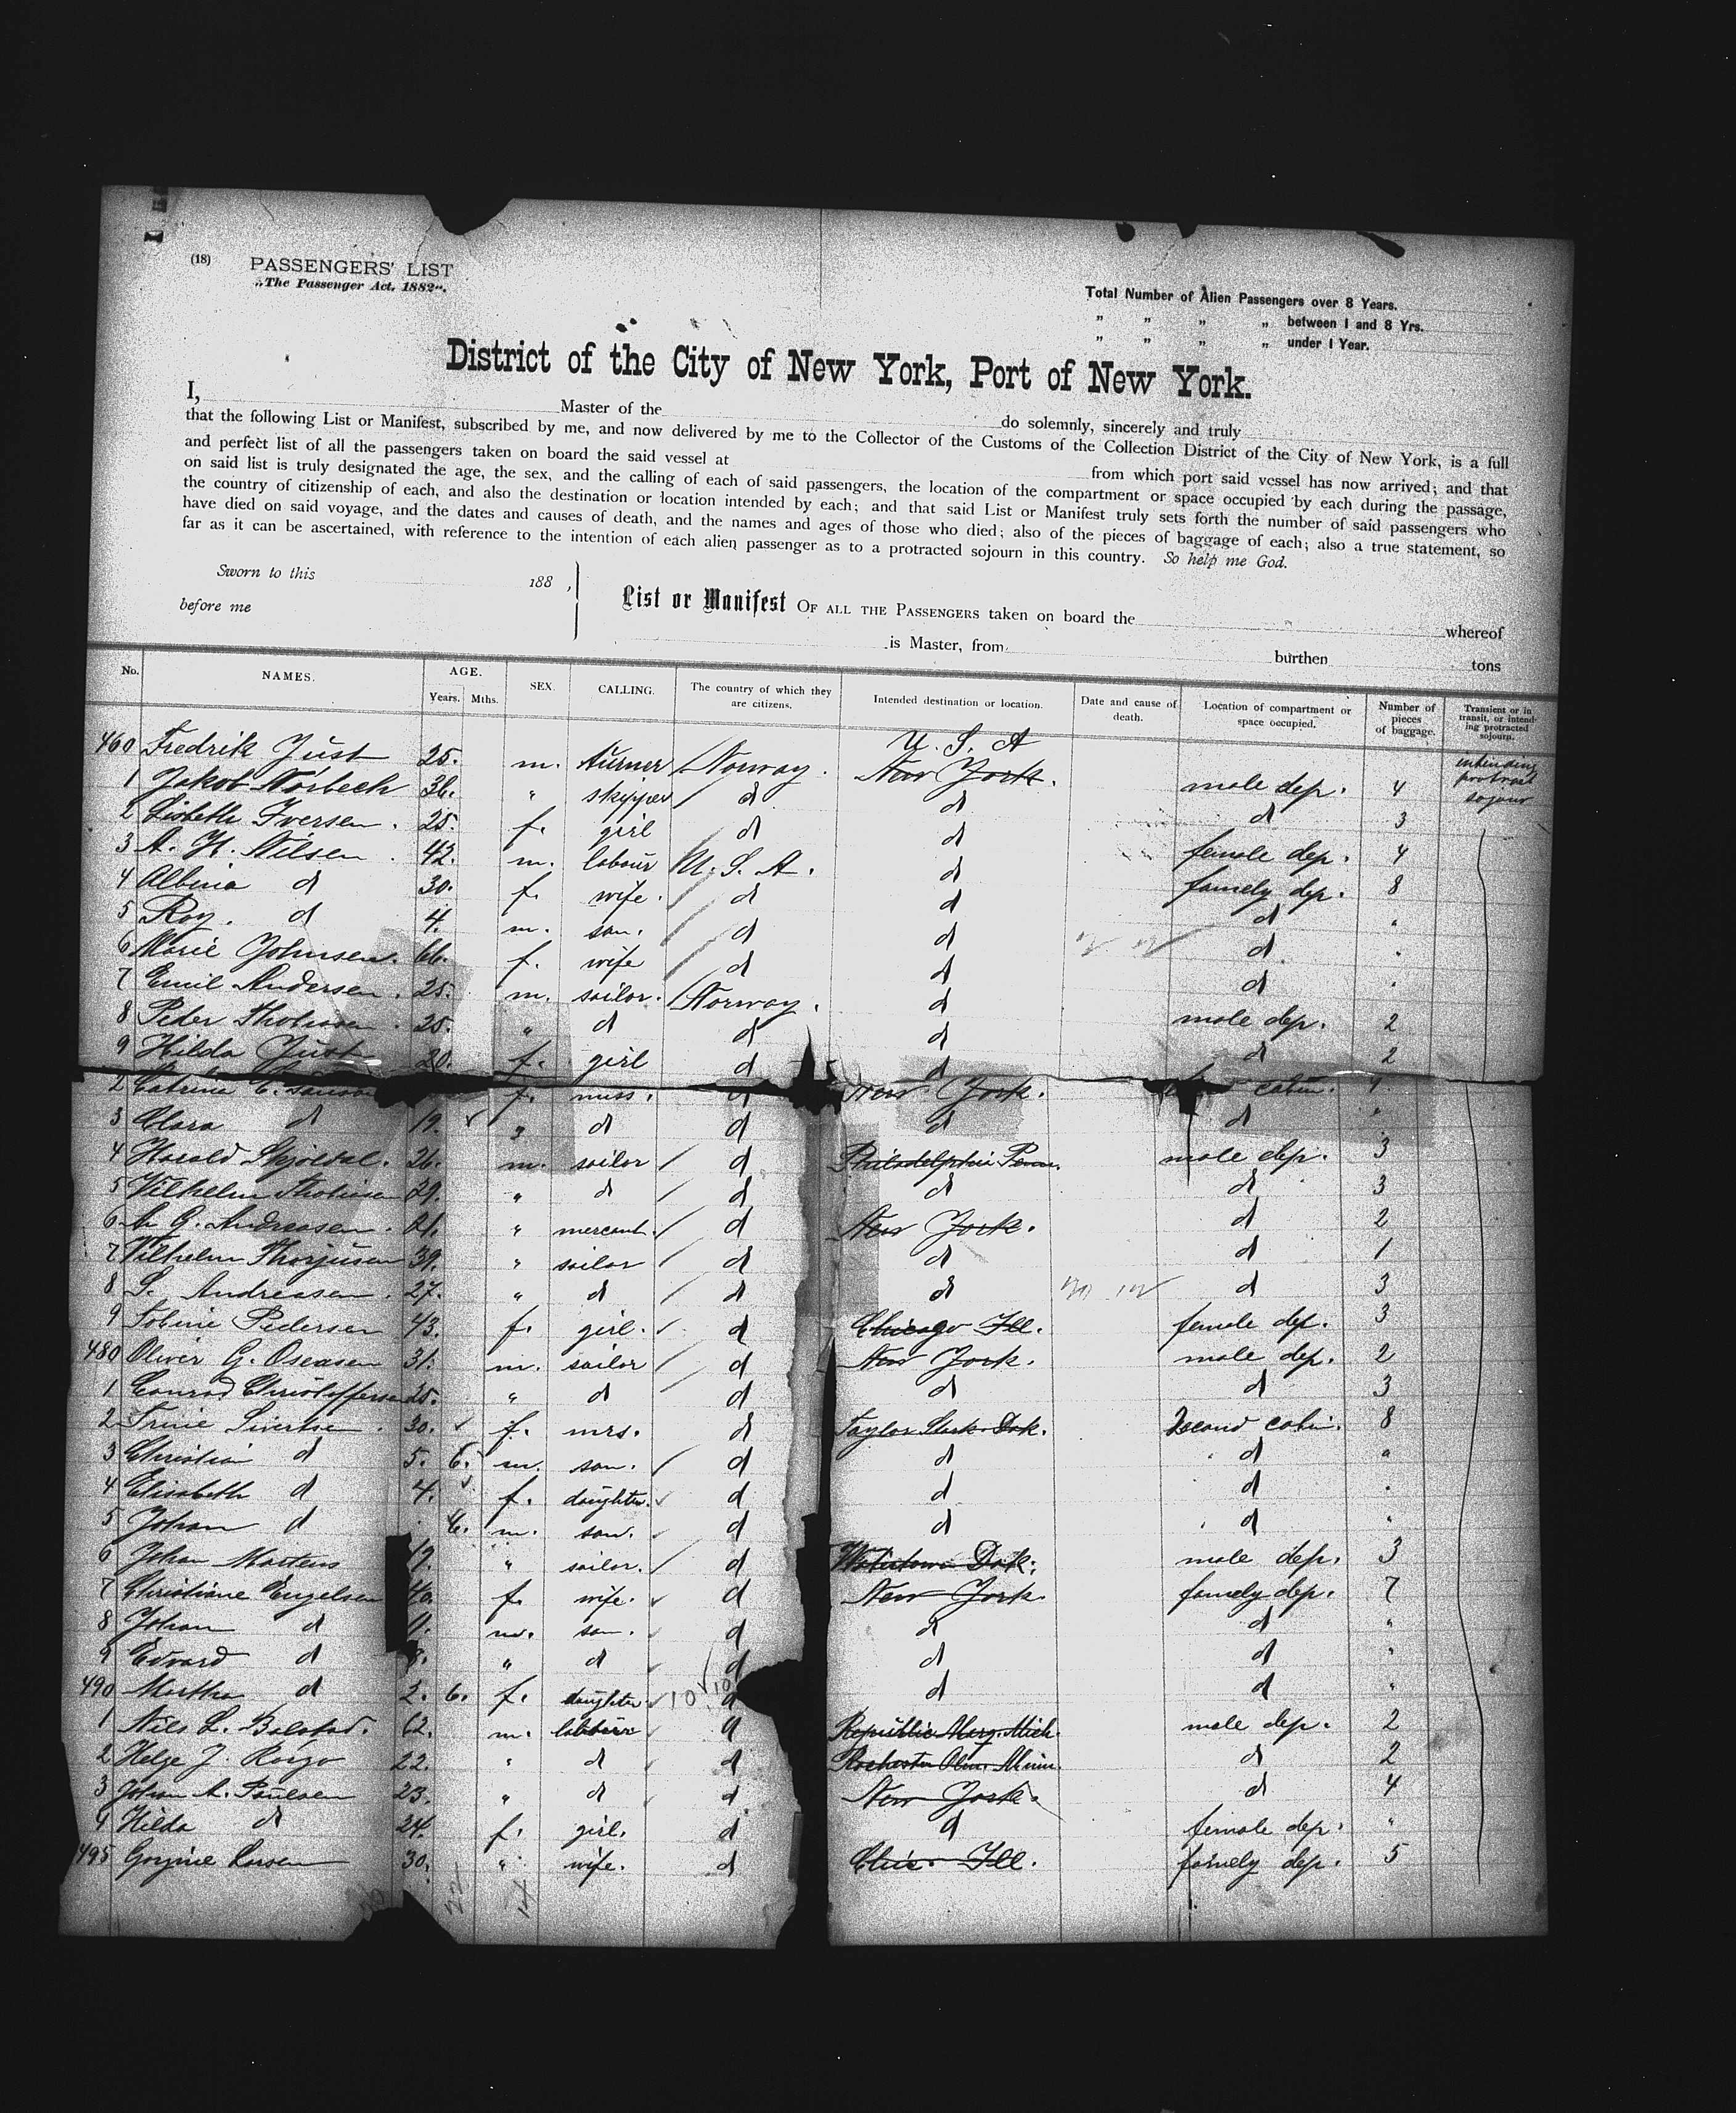 (18)
PASSENGERS' LIST
„The Passenger Act, 1882".
Total Number of Alien Passengers over 8 Years.
„ „ „ „ between 1 and 8 Yrs.
„ „ „ „ under 1 Year.
District of the City of New York, Port of New York.
I, Master of the do solemnly, sincerely and truly
that the following List or Manifest, subscribed by me, and now delivered by me to the Collector of the Customs of the Collection District of the City of New York, is a full
and perfect list of all the passengers taken on board the said vessel at from which port said vessel has now arrived; and that
on said list is truly designated the age, the sex, and the calling of each of said passengers, the location of the compartment or space occupied by each during the passage,
the country of citizenship of each, and also the destination or location intended by each; and that said List or Manifest truly sets forth the number of said passengers who
have died on said voyage, and the dates and causes of death, and the names and ages of those who died; also of the pieces of baggage of each; also a true statement, so
far as it can be ascertained, with reference to the intention of each alien passenger as to a protracted sojourn in this country. So help me God.
Sworn to this 188 ,
before me
List or Manifest OF ALL THE PASSENGERS taken on board the whereof
is Master, from burthen tons
No. NAMES. AGE. Years. Mths. SEX. CALLING. The country of which they are citizens. Intended destination or location. Date and cause of death. Location of compartment or space occupied. Number of pieces of baggage. Transient or in transit, or intending protracted sojourn.
U. S. A
460 Fredrik Just 25. m. turner Norway. New York. male dep. 4 intending protract sojour
1 Jakob Norbech 36. " skipper d d d 3
2 Lisbeth Iversen. 25. f. girl d d female dep. 4
3 A. H. Nilsen. 42. m. labour U. S. A. d famely dep. 8
4 Albina d 30. f. wife. d d d "
5 Roy. d 4. m. son. d d d. "
6 Marie Johnsen. 66. f. wife d d d "
7 Emil Andersen. 25. m. sailor. Norway. d male dep. 2
8 Peder 25. " d d d d 2
9 Hilda Just 20. f. girl d d
2 f. miss. d New York. cabin. 4.
3 Clara d 19. " d d d d "
4 Harald Skjoldal. 26. m. sailor d Philadelphia Penn. male dep. 3
5 Vilhelm 29. " d d d d 3
6 A. G. Andreasen. 21. " mercant. d New York. d 2
7 Vilhelm Thorjusen 39. " sailor d d d 1
8 S. Andreasen. 27. " d d d d 3
9 Tobine Pedersen 43. f. girl. d Chicago Ill. female dep. 3
480 Oliver G. Oseasen 31. m. sailor d New York. male dep. 2
1 Conrad Christoffersen 25. " d d d d 3
2 Trine Sivertsen. 30. f. mrs. d Taylor Stark Dak. Second cabin. 8
3 Christian d 5. 6. m. son. d d d "
4 Elisabeth d 4. f. daughter. d d d "
5 Johan d 6. m. son. d d d "
6 Johan Martens 19. " sailor. d Watertown Dak. male dep. 3
7 Christiane Engelsen 40. f. wife. d New York. famely dep. 7
8 Johan d m. son. d d d "
9 Edvard d 8. " d d d d "
490 Martha d 2. 6. f. daughter 10 10 d d d "
1 Nils L. 62. m. labour d Republic Marq. Mich. male dep. 2
2 Helge J. 22. " d d Rochester Olm. Minn. d 2
3 Johan A. Paulsen 23. " d d New York. d 4
4 Hilda d 24. f. girl. d d female dep. "
495 Gorgine Larsen 30. " wife. d Chic. Ill. famely dep. 5